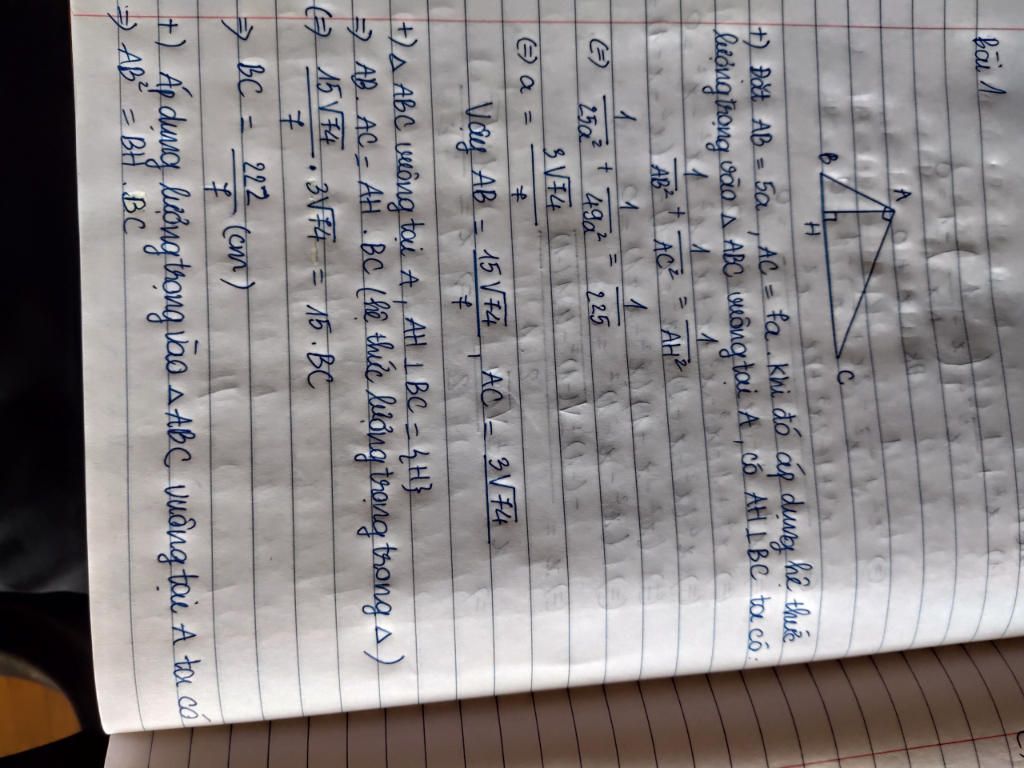 bài 1
A
B
H
C
+) Đặt AB = 5a, AC = 7a. Khi đó áp dụng hệ thức
lượng trong vào △ ABC vuông tại A, có AH ⊥ BC ta có:
1/AB² + 1/AC² = 1/AH²
(=) 1/25a² + 1/49a² = 1/225
(=) a = 3√74/7
Vậy AB = 15√74/7, AC = 3√74
+) △ ABC vuông tại A, AH ⊥ BC = {H}
⇒ AB. AC = AH. BC (hệ thức lượng trong trong △)
(=) 15√74/7 . 3√74 = 15. BC
⇒ BC = 222/7 (cm)
+) Áp dụng lượng trong vào △ ABC vuông tại A ta có
⇒ AB² = BH. BC